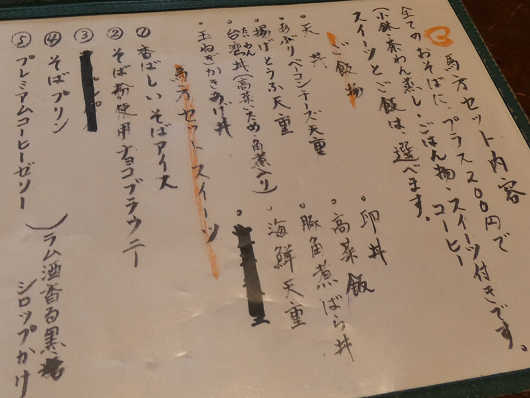 馬方セット内容
全てのおそばに、プラス200円で
(小鉢・茶わん蒸し・ごはん物・スイーツ付きです。
スイーツとご飯は選べます。 コーヒー
ご飯物
・天丼
・あぶりベーコンチーズ天重
・揚げとうふ天重
・台湾丼(高菜いため・角煮入り)
・玉ねぎかきあげ丼
・卵丼
・高菜飯
・豚角煮ばら丼
・海鮮天重
馬方セットスイーツ
①香ばしいそばアイス
②そば粉使用チョコブラウニー
③
④そばプリン
⑤プレミアムコーヒーゼリー
ラム酒香る黒
シロップかけ